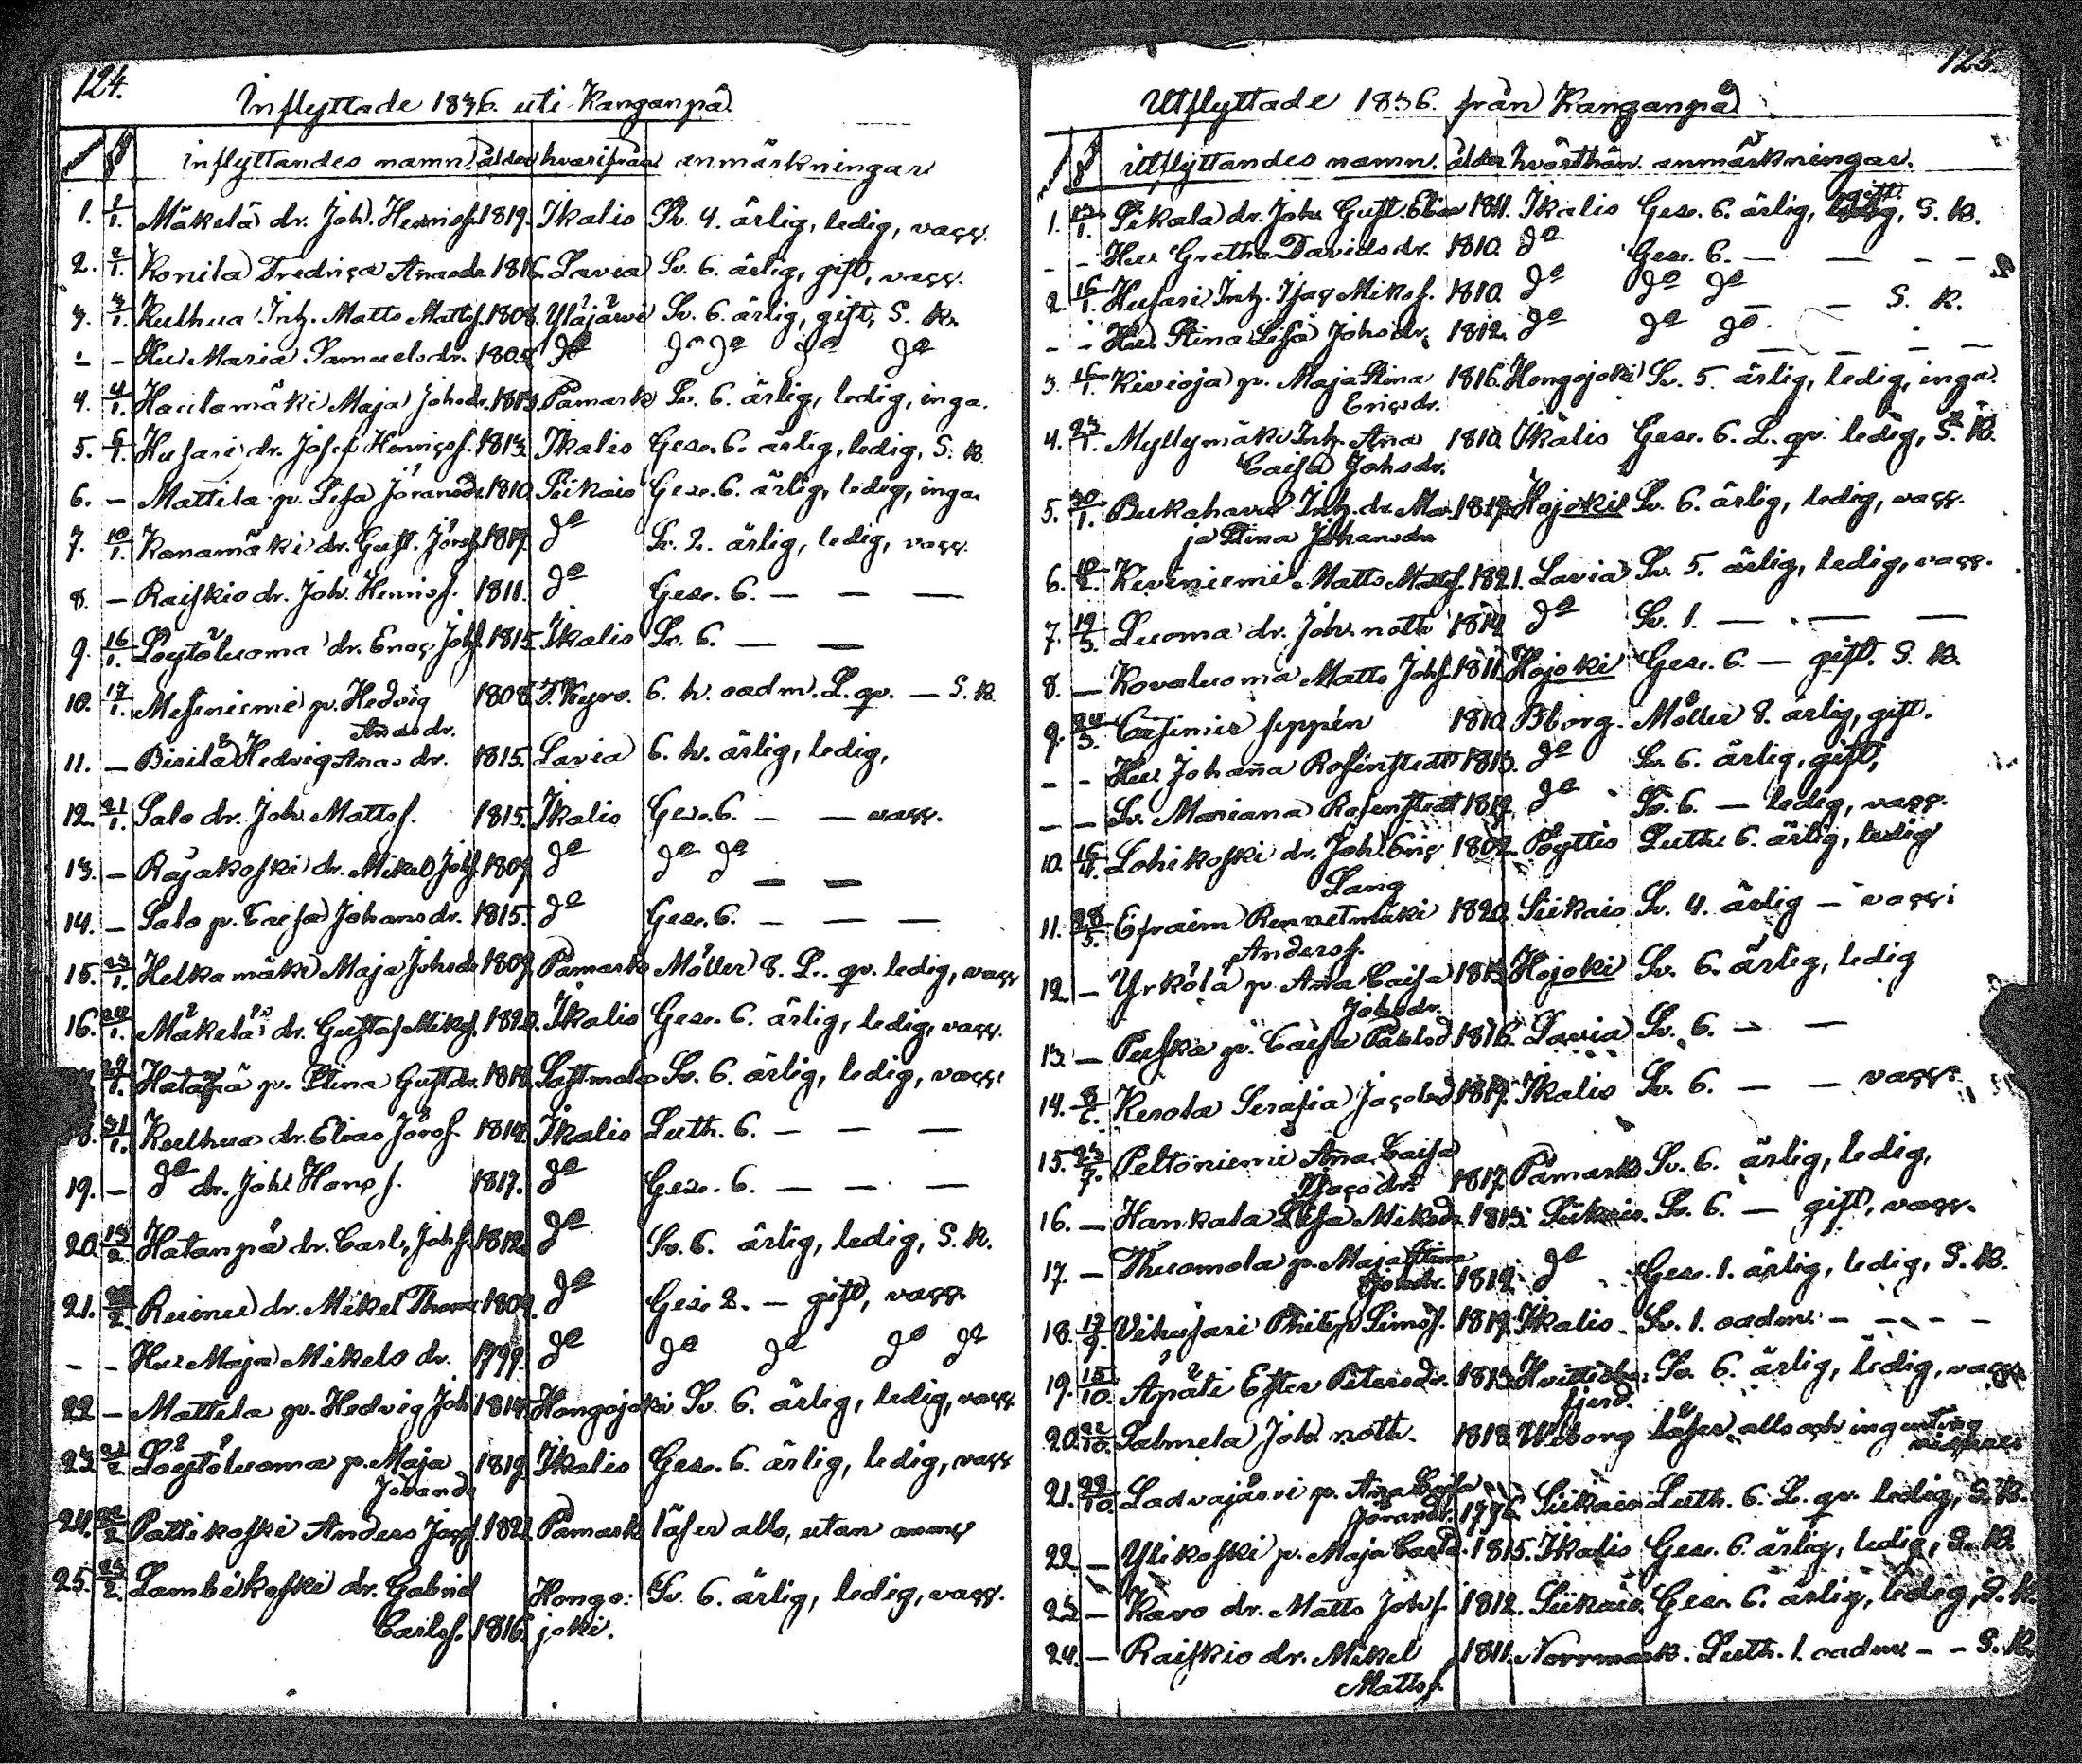 124.
Inflyttade 1836. uti Kanganpä
inflyttandes namn. ålder hvarifrån anmärkningar
1. 1/1. Mäkelä dr. Joh. Henricsf. 1819. Ikalis 4. ärlig, ledig, vacc.
2. 2/1. Konila Fredrica Anasdr. Lavia Sv. 6. ärlig, gift, vacc.
3. 3/1. Kulhua Inh. Matts Mattsf. 1808. Ylöjärvi Sv. 6. ärlig, gift, S. K.
- - Hu Maria Samuelsdr. do do do do do
4. 4/1. Hautamäki Maja Johsdr. Påmark Sv. 6. ärlig, ledig, inga.
5. Husari dr. Josef Henricsf. 1813. Ikalis Gese. 6. ärlig, ledig, S. K.
6. - Mattila p. Lisa Joransdr. 1810. Siikais Gese. 6. ärlig, ledig, inga.
7. 10/1. Kanamäki dr. Gust. Jörsf. 1817. do Sv. 2. ärlig, ledig, vacc.
8. - Raiskio dr. Joh. Henricsf. 1811. do Gese. 6. - - -
9. 16/1. Löytöluoma dr. Enoc Johsf. 1815. Ikalis Sv. 6. - -
10. 17/1. Mesiniemi p. Hedvig 1808. T.Kyro. 6. h. oadm. L. qv. - S. K.
Andsdr.
11. - Birilä Hedvig Anas dr. 1815. Lavia 6. h. ärlig, ledig,
12. 21/1. Salo dr. Joh. Mattsf. 1815. Ikalis Gese. 6. - - vacc.
13. - Rajakoski dr. Mikel Johsf. 1809. do do do - -
14. - Salo p. Caisa Johansdr. 1815. do Gese. 6. - - -
15. 23/1. Helkamäki Maja Johsdr. 1809. Påmark Möller 8. L. qv. ledig, vacc
16. Mäkelä dr. Gustaf Miksf. Ikalis Gese. 6. ärlig, ledig, vacc.
Hatanpä p. Stina Gustdr. 1818. Lastmola Sv. 6. ärlig, ledig, vacc.
31/1. Kulhua dr. Elias Jörsf. 1814. Ikalis Luth. 6. - - -
19. - do dr. Joh. Hancsf. 1817. do Gese. 6. - - -
20. 13/2. Hatanpä dr. Carl, Johsf. 1812. do Sv. 6. ärlig, ledig, S. K.
21. Reimu dr. Mikel Thom 1809. do Gese. 2. - gift, vacc.
- - Hu Maja Mikels dr. 1799. do do do do do
22 - Mattila p. Hedvig Joh 1814. Hongojoki Sv. 6. ärlig, ledig, vacc.
23 Löytöluoma p. Maja 1819. Ikalis Gese. 6. ärlig, ledig, vacc
Johansd
24. 22/2 Pattikoski Anders Jacsf. 1821. Påmark läser alls, utan
25. 25/2. Lambikoski dr. Gabriel Hongo: Sv. 6. ärlig, ledig, vacc.
Carlsf. 1816. joki.
125.
Utflyttade 1836. från Kanganpä
utflyttandes namn. ålder hvarthän. anmärkningar.
1. 13/1. Pikala dr. Joh. Gust. Elias 1811. Ikalis Gese. 6. ärlig, gift. S. K.
- - Hu Gretha Davidsdr. 1810. do Gese. 6. - - - -
2. 16/1 Husari Inh. Isac Miksf. 1810. do do do - - S. K.
- - Hu Stina Lisa Johsdr. 1812. do do do - - - -
3. 16/1. Kivioja p. Maja Stina 1816. Hongojoki Sv. 5. ärlig, ledig, inga.
Ericsdr.
4. 23/1. Myllymäki Inh. Ana 1810. Ikalis Gese. 6. L. qv. ledig, S. K.
Caisa Johsdr.
5. 30/1. Bukahava Inh. dr. Ma- 1817. Hojoki Sv. 6. ärlig, ledig, vacc.
ja Stina Johansdr
6. 10/2. Keviniemi Matts Mattsf. 1821. Lavia Sv. 5. ärlig, ledig, vacc.
7. 19/3. Luoma dr. Joh. noth 1814. do Sv. 1. - - -
8. - Kovaluoma Matts Johsf. 1811. Hojoki Gese. 6. - gift. S. K.
9. 24/3. Casimir seppén 1810. Bborg. Möller 8. ärlig, gift.
- - Hu Johanna Rosenstedt 1813. do Sv. 6. ärlig, gift,
- - Sv. Mariana Rosenstedt 1812. do Sv. 6. - ledig, vacc.
10. 16/4. Lohikoski dr. Joh. Eric 1802. Pöyttis Luth. 6. ärlig, ledig
Lang
11. 28/5. Efraim Renvetmäki 1820. Siikais Sv. 4. ärlig - vacc.
Andersf.
12. - Yrkölä p. Ana Caisa 1813. Hojoki Sv. 6. ärlig, ledig
Johsdr.
13. - Puska p. Caisa Pahlsd 1816. Lavia Sv. 6. - -
14. 8/6. Kerola Serafia Jacobsd 1817. Ikalis Sv. 6. - - vacc.
15. 23/7. Peltoniemi Ana Caisa
Isacsdr. 1817. Påmark Sv. 6. ärlig, ledig,
16. - Hankala Lisa Miksdr 1813. Siikais. Sv. 6. - gift, vacc.
17. - Thuomola p. Maja Stina
1812. do Gese. 1. ärlig, ledig, S. K.
18. 17/9. Vihusari Philip Simsf. 1812. Ikalis. Sv. 1. oadm. - - - -
19. 15/10. Äpäti Ester Petersdr. 1813. Hvittisbo: Sv. 6. ärlig, ledig, vacc
fjerd.
20. 22/10. Salmela Joh noth. 1818. Wiborg läser alls och ingenting
21. 29/10. Ladvajärvi p. Ana Caisa
Jörandr. 1796. Siikais Luth. 6. L. qv. ledig, S. K.
22 - Ylikoski p. Maja Carlsd. 1815. Ikalis Gese. 6. ärlig, ledig, S. K.
23 - Kavo dr. Matts Johsf. 1812. Siikais. Gese. 6. ärlig, ledig, S. K.
24. - Raiskio dr. Mikel 1811. Norrmark. Luth. 1. oadm. - - S. K.
Mattsf.